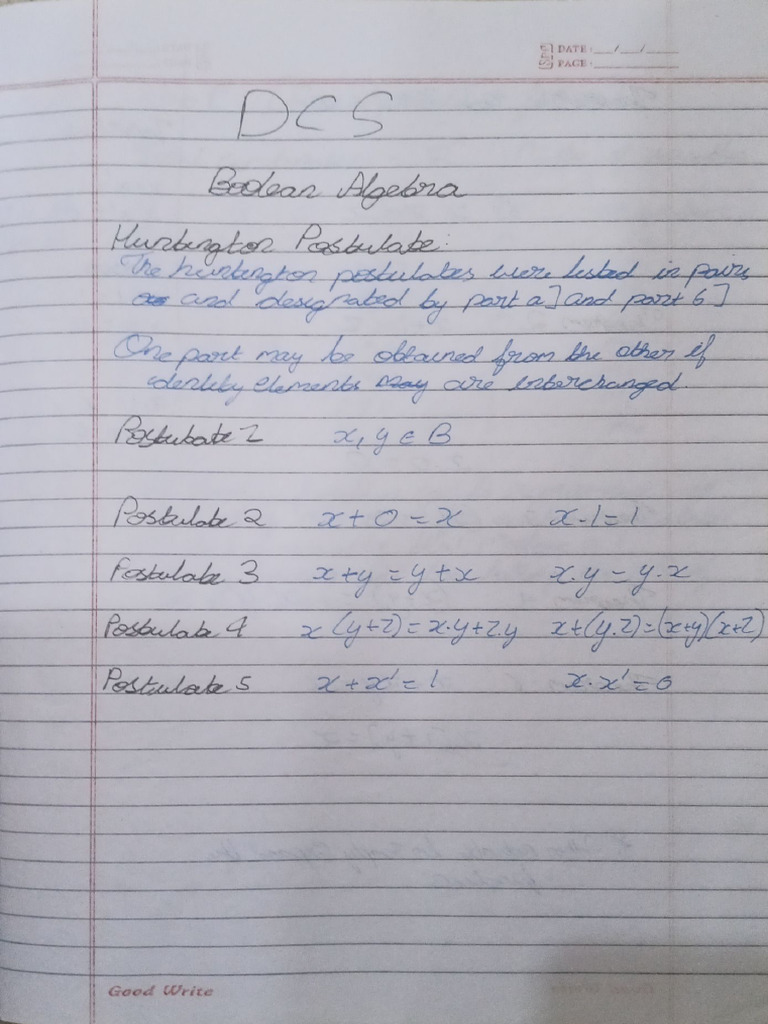 DATE: __/__/__
PAGE:
DCS
Boolean Algebra
Huntington Postulate:
The huntington postulates were listed in pairs
and designated by part a] and part b]
One part may be obtained from the other if
identity elements may are interchanged.
Postulate 1 x, y ∈ B
Postulate 2 x + 0 = x x·1 = 1
Postulate 3 x + y = y + x x·y = y·x
Postulate 4 x (y+z) = x·y + z·y x+(y·z) = (x+y)(x+z)
Postulate 5 x + x' = 1 x·x' = 0
Good Write